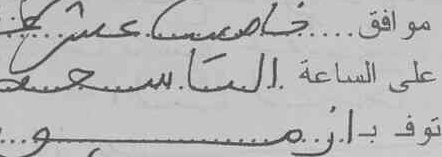 موافق .... خامس عشر
على الساعة التاسعة
توف بـ ازمو